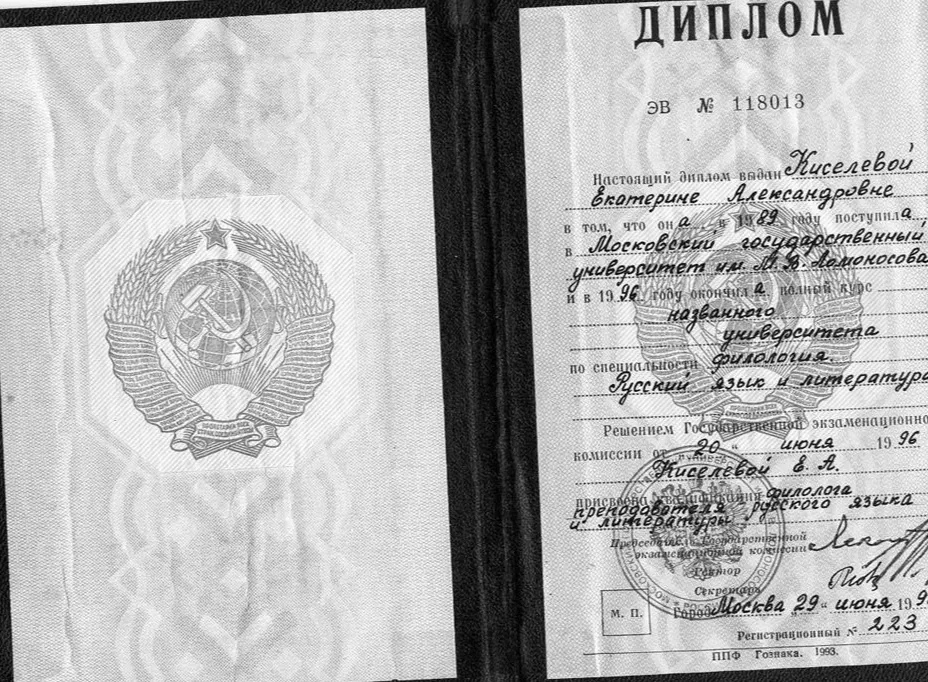 ДИПЛОМ
ЭВ № 118013
Настоящий диплом выдан Киселевой
Екатерине Александровне
в том, что она в 1989 году поступила
в Московский государственный
университет им. М. В. Ломоносова
и в 1996 году окончила полный курс
названного
университета
по специальности филология.
Русский язык и литература
Решением Государственной экзаменационно
комиссии от "20" июня 1996
Киселевой Е. А.
присвоена квалификация филолога
преподавателя русского языка
и литературы
Председатель Государственной
экзаменационной комиссии
Ректор
Секретарь
М. П. Город Москва "29" июня 199
Регистрационный № 223
ППФ Гознака. 1993.